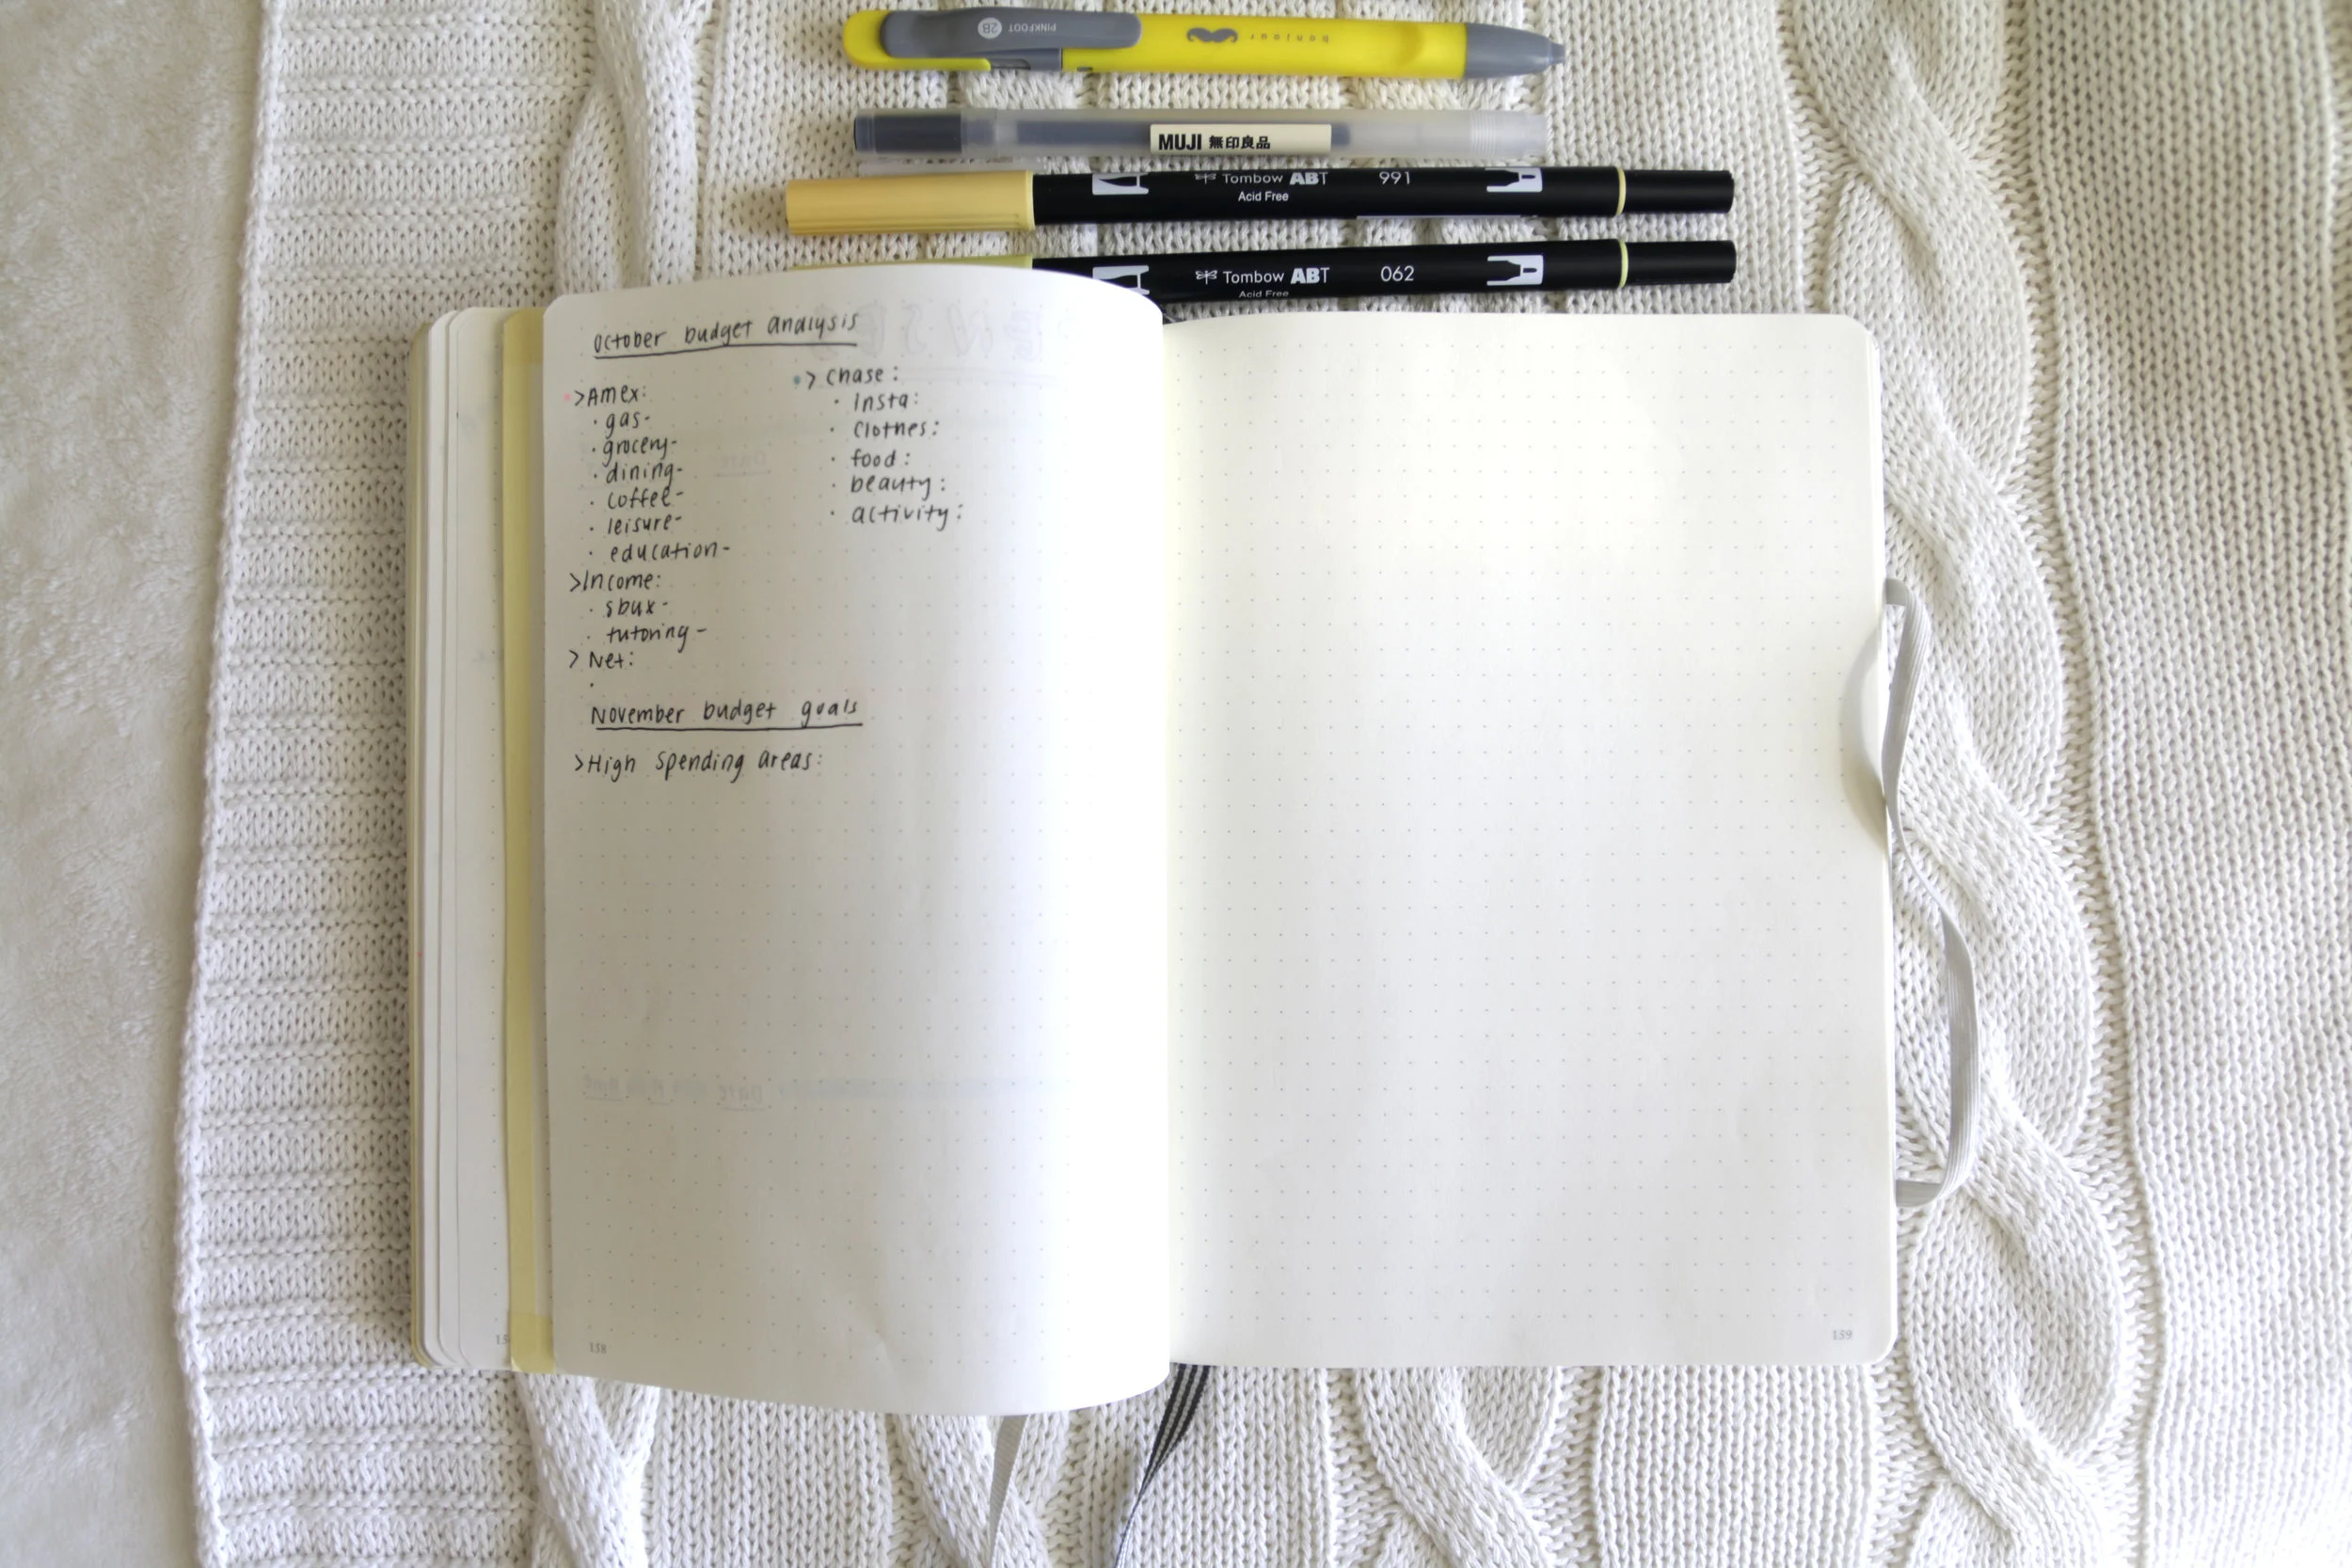 2B PINKFOOT bonjour
MUJI 無印良品
Tombow ABT 991
Acid Free
Tombow ABT 062
Acid Free
October budget analysis
>Amex:
· gas-
· grocery-
· dining-
· coffee-
· leisure-
· education-
>Income:
· sbux-
· tutoring-
> Net:
·
> Chase:
· Insta:
· Clothes:
· food:
· beauty:
· activity:
November budget goals
>High spending areas:
158
159